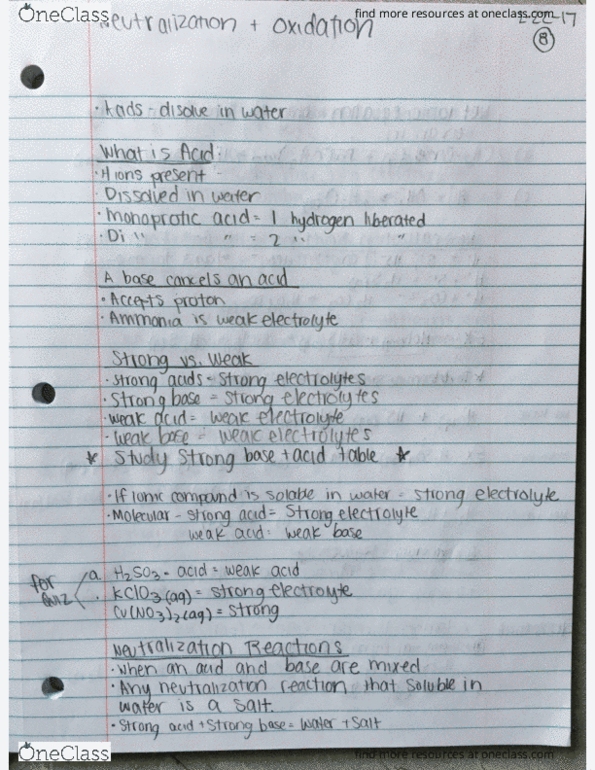 OneClass
find more resources at oneclass.com
Neutralization + oxidation
-17
8
· kads - disolve in water
What is Acid:
· H ions present
· Dissolved in water
· Monoprotic acid = 1 hydrogen liberated
· Di " " = 2 " "
A base cancels an acid
· Accepts proton
· Ammonia is weak electrolyte
Strong vs. Weak
· strong acids - strong electrolytes
· Strong base = strong electrolytes
· weak acid = weak electrolyte
· Weak base = weak electrolytes
* Study Strong base + acid table *
· If Ionic compound is soluble in water - strong electrolyte
· Molecular - strong acid = Strong electrolyte
weak acid: weak base
for quiz
a. H₂SO₃ - acid = weak acid
· KClO₃(aq) = strong electrolyte
Cu(NO₃)₂(aq) = strong
Neutralization Reactions
· When an acid and base are mixed
· Any neutralization reaction that soluble in
water is a salt.
· Strong acid + Strong base = Water + Salt
OneClass
find more resources at oneclass.com